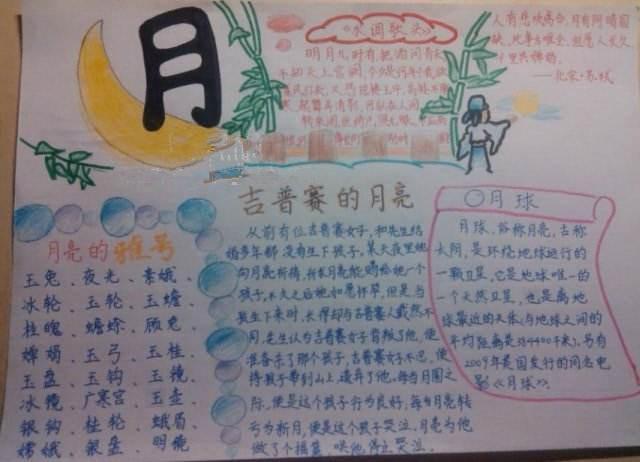 月
《水调歌头》
明月几时有,把酒问青天
不知天上宫阙,今夕是何年?我欲
乘风归去,又恐琼楼玉宇,高处不胜
寒,起舞弄清影,何似在人间
转朱阁,低绮户,照无眠,不应有
人有悲欢离合,月有阴晴圆
缺,此事古难全,但愿人长久
千里共婵娟。
——北宋·苏轼
月亮的雅号
玉兔、夜光、素娥、
冰轮、玉轮、玉蟾、
桂魄、蟾蜍、顾兔、
婵娟、玉弓、玉桂、
玉盘、玉钩、玉镜、
冰镜、广寒宫、玉壶、
银钩、桂轮、蛾眉、
嫦娥、银盘、明镜
吉普赛的月亮
从前有位吉普赛女子,和先生结
婚多年都没有生下孩子。某天夜里她
向月亮祈祷,祈求月亮能赐给她一个
孩子,不久之后她如愿怀孕,但是当
长生下来时,长得却与吉普赛人截然不
同,先生认为吉普赛女子背叛了他,便
准备杀了那个孩子,吉普赛女子不忍,便
将孩子带到山上,遗弃了他,每当月圆之
际,便是这个孩子行为良好,每当月亮转
弯为新月,便是这个孩子哭泣,月亮为他
做了个摇篮,哄他停止哭泣
月球
月球,俗称月亮,古称
太阴,是环绕地球运行的
一颗卫星,它是地球唯一的
一个天然卫星,也是离地
球最近的天体(与地球之间的
平均距离是384400千米)。另有
2009年美国发行的同名电
影《月球》。